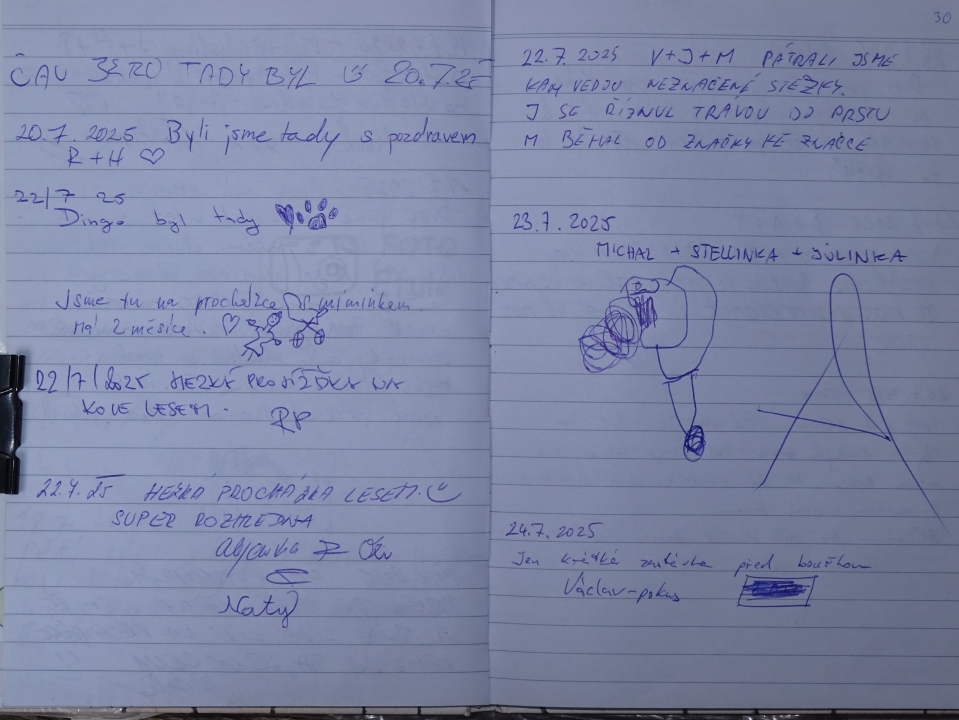 ČAU ZERO TADY BYL 20.7.25
20.7.2025 Byli jsme tady s pozdravem
R + H ♡
22/7 25
Dingo byl tady
Jsme tu na procházce s miminkem.
Má 2 měsíce. ♡
22/7/2025 HEZKÁ PROJÍŽĎKA NA
KOLE LESEM.
RP
22.7.25 HEZKÁ PROCHÁZKA LESEM.
SUPER ROZHLEDNA
Naty
30
22.7.2025 V+J+M PÁTRALI JSME
KAM VEDOU NEZNAČENÉ STEZKY.
J SE ŘÍZNUL TRÁVOU DO PRSTU
M BĚHAL OD ZNAČKY KE ZNAČCE
23.7.2025
MICHAL + STELLINKA + JŮLINKA
24.7.2025
Jen krátká zastávka před bouřkou
Václav-pokus